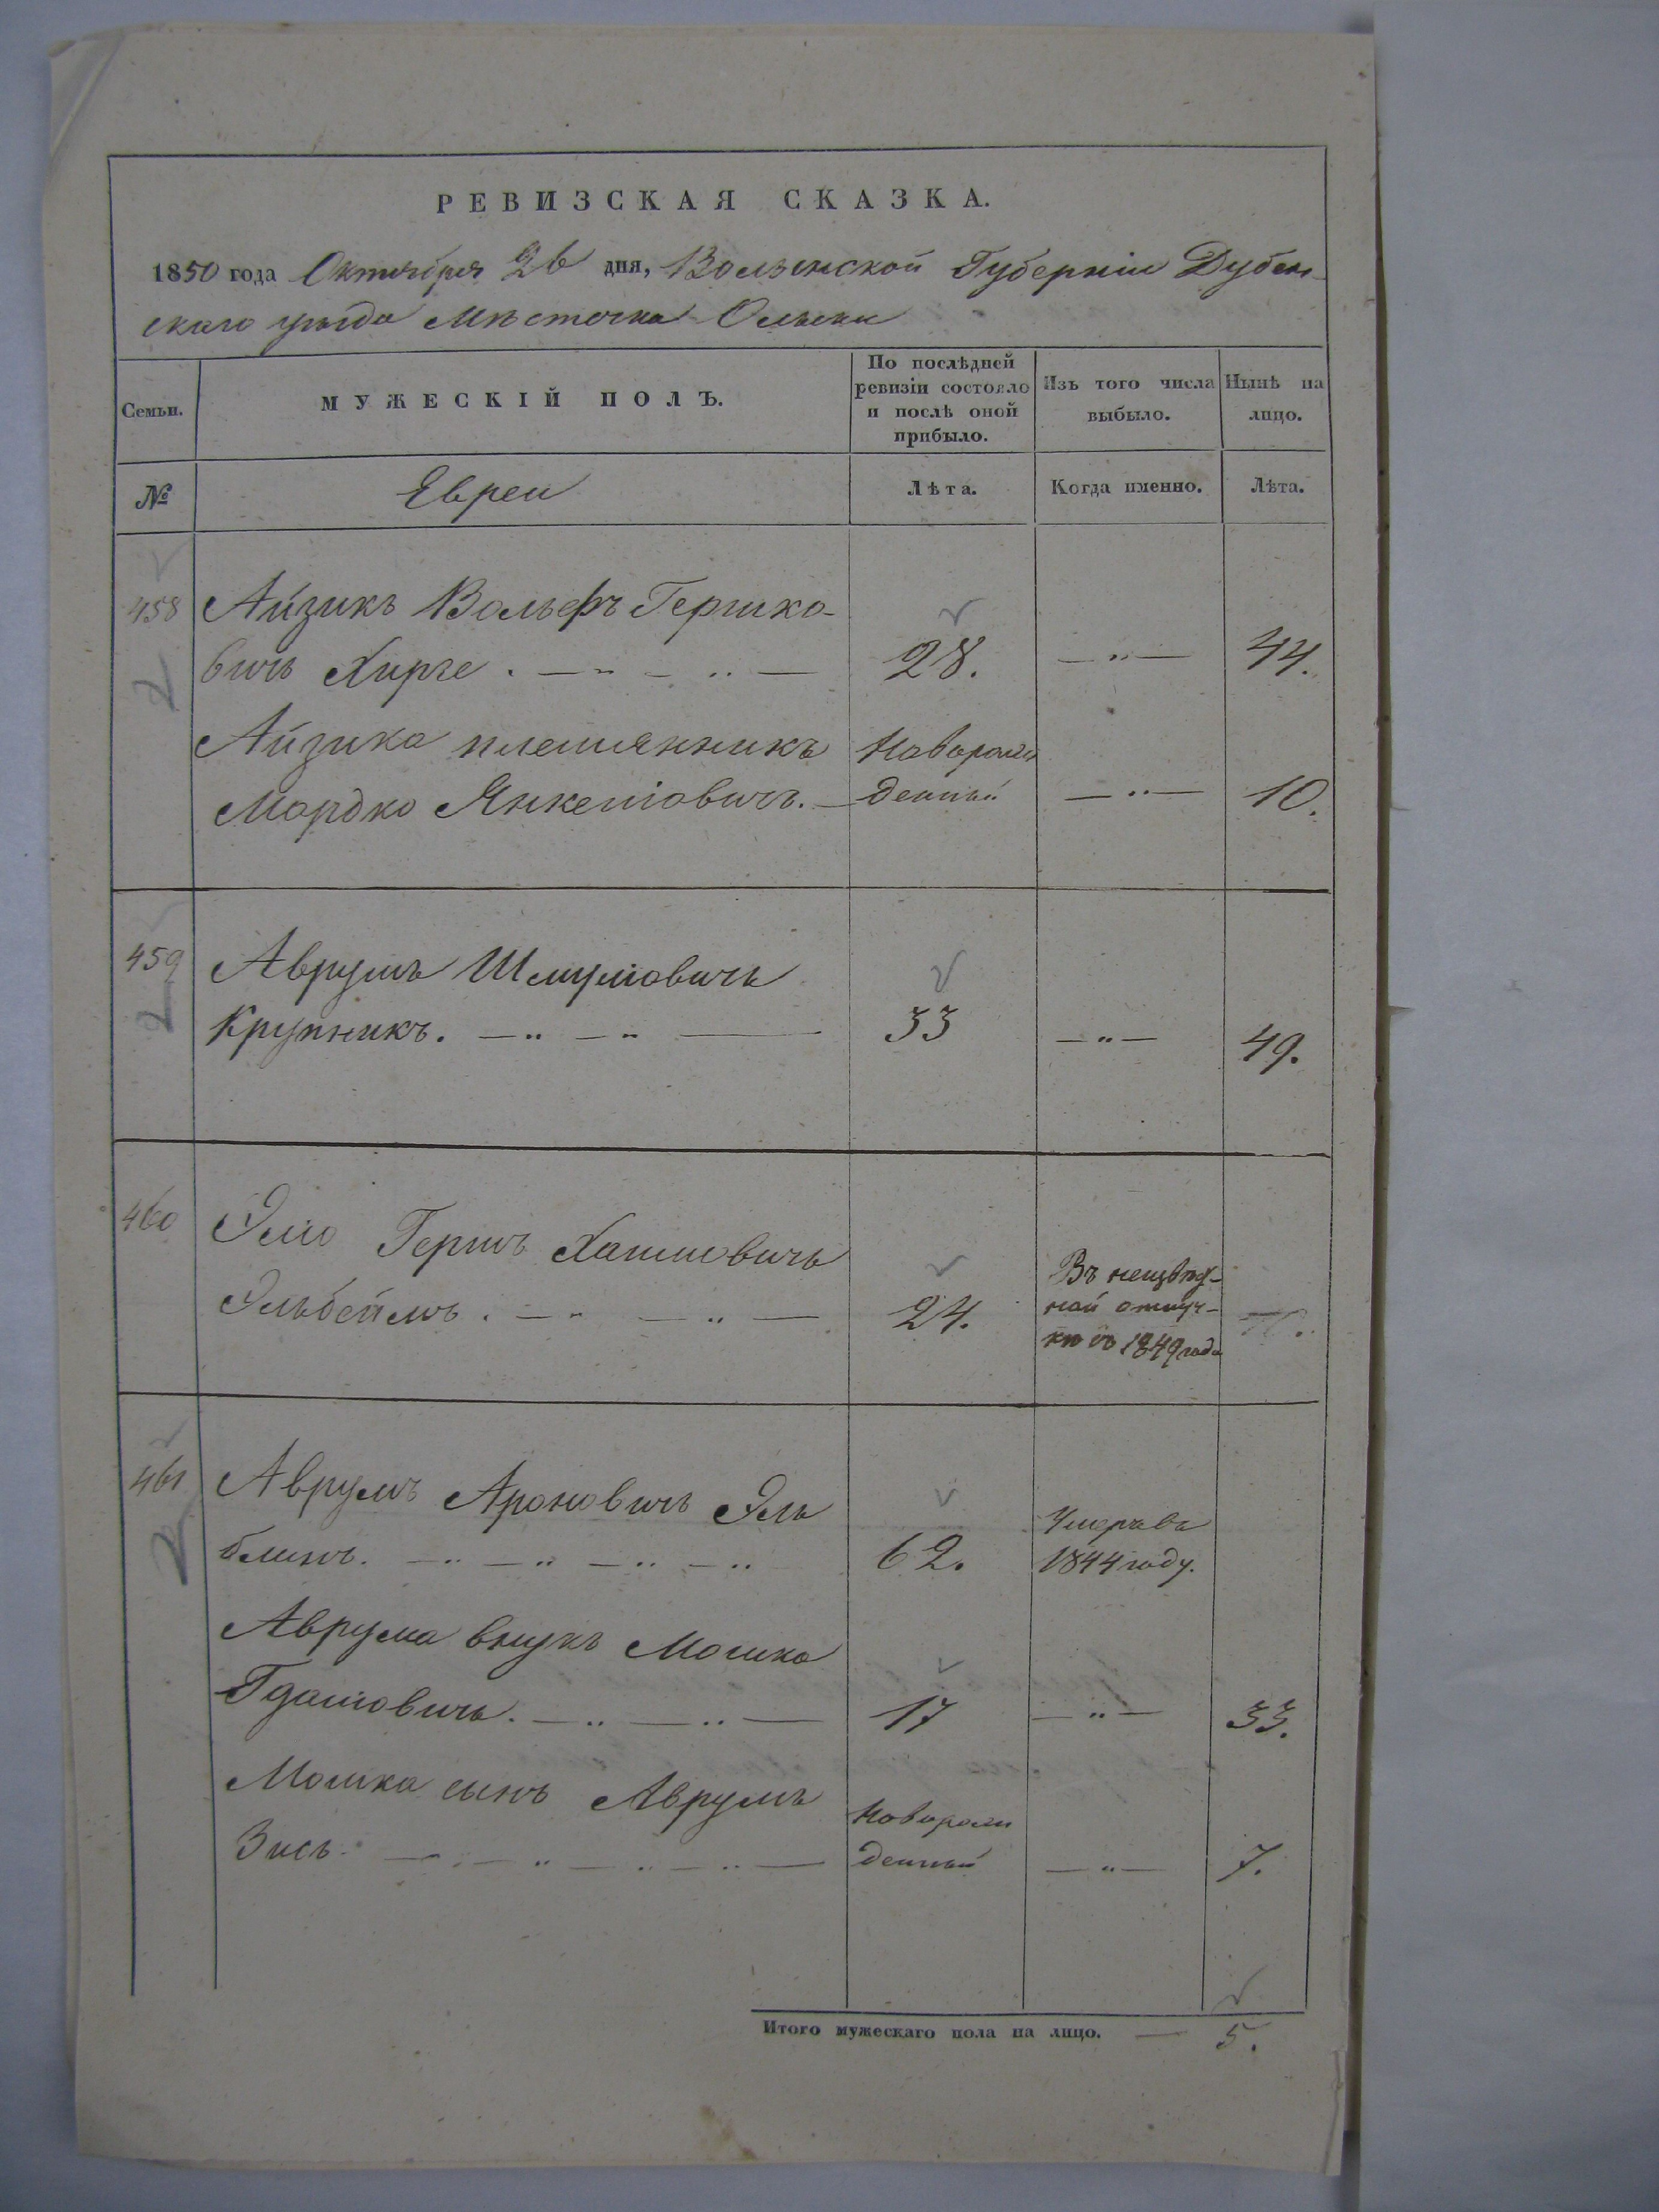 РЕВИЗСКАЯ СКАЗКА.
1850 года Октября 26 дня, Волынской Губерніи Дубен-
скаго уезда Мѣсточка Олыки
Семьи.
МУЖЕСКІЙ ПОЛЪ.
По послѣдней ревизіи состояло и послѣ оной прибыло.
Изъ того числа выбыло.
Нынѣ на лицо.
№
Евреи
Лѣта.
Когда именно.
Лѣта.
458 Айзикъ Вольфъ Гершко-
вичъ Хирге . 28. 44.
Айзика племянникъ Новорож
Мордко Янкеліовичъ. денный 10.
459 Аврумъ Шмуліовичъ
Крупникъ. 33 49.
460 Эліо Гершъ Хаимовичъ
Эльбеймъ . 24.
Въ неизвѣст-
ной отлуч-
кѣ съ 1849 года
461 Аврумъ Ароновичъ Эль
блинъ. 62.
Умеръ въ
1844 году.
Аврума внукъ Мошко
Гдаліовичъ. 17 33.
Мошка сынъ Аврумъ Новорож
Зись. денный 7.
Итого мужескаго пола на лицо. — 5.